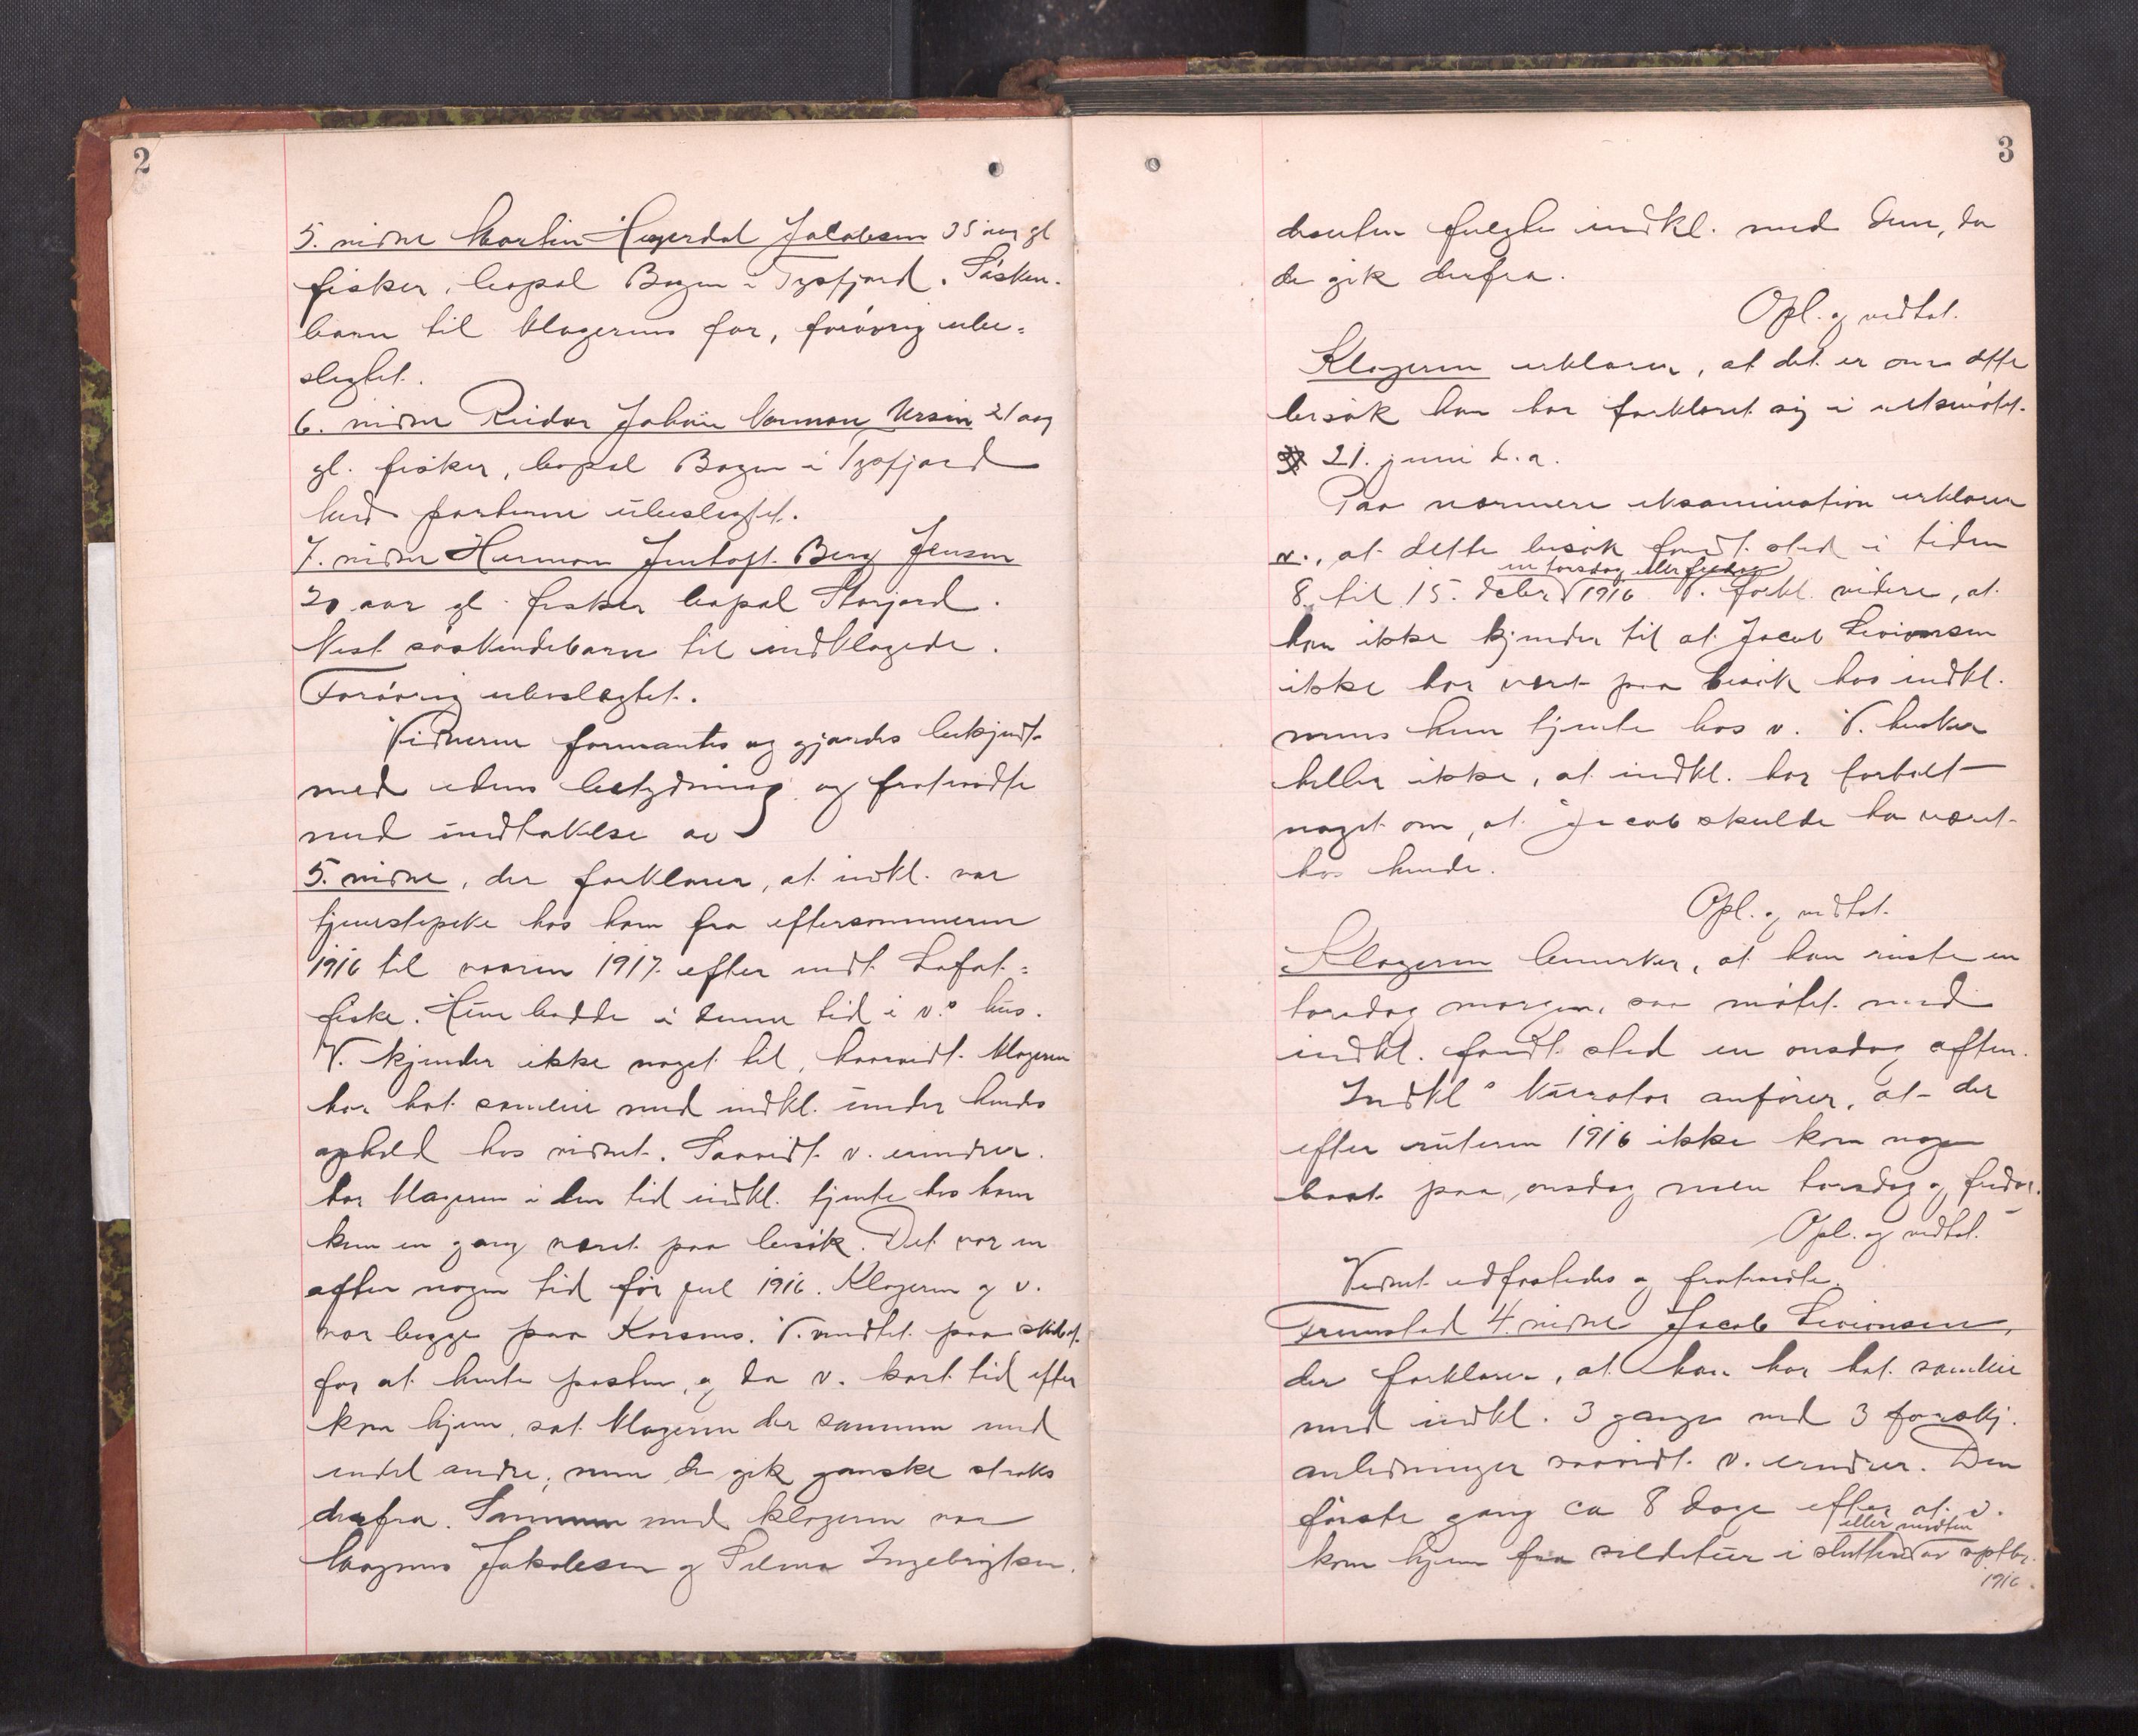 2
5. vidne Martin Hegerdal Jakobsen 35 aar gl
fisker, bopæl Bogen i Tysfjord. Søsken-
barn til klagerens far, forøvrig ube-
slegtet.
6. vidne Reidar Johan Norman Ursin 21 aar
gl. fisker, bopæl Bogen i Tysfjord
med parterne ubeslegtet.
7. vidne Herman Jentoft Berg Jensen
20 aar gl. fisker bopæl Storjord.
Nest søskendebarn til indklagede.
Forøvrig ubeslegtet.
Vidnerne formantes og gjordes bekjendt
med edens betydning og fratraadte
med undtakelse av
5. vidne, der forklarer, at indkl. var
tjenestepike hos ham fra eftersommeren
1916 til vaaren 1917 efter endt Lofot-
fiske. Hun bodde i denne tid i v.s hus.
V. kjender ikke noget til, hvorvidt klageren
har hat samleie med indkl. under hendes
ophold hos vidnet. Saavidt v. erindrer.
har klageren i den tid indkl. tjente hos ham
kun en gang været paa besøk. Det var en
aften nogen tid før jul 1916. Klageren og v.
var begge paa Korsnes. V. ventet paa skibet
for at hente posten, og da v. kort tid efter
kom hjem, sat klageren der sammen med
endel andre, men de gik ganske straks
derfra. Sammen med klageren var
Magnus Jakobsen og Selma Ingebrigtsen.
3
desuten fulgte indkl. med dem, da
de gik derfra.
Opl. og vedtat.
Klageren erklærer, at det er om dette
besøk han har forklaret sig i retsmøtet
21. juni d.a.
Paa nærmere eksamination erklærer
v., at dette besøk fandt sted i tiden
en torsdag eller fredag
8. til 15. debr 1916 V. forkl. videre, at
han ikke kjender til at Jacob Sivionsen
ikke har vært paa besøk hos indkl.
mens hun tjente hos v. V. husker
heller ikke, at indkl. har fortalt
noget om, at Jacob skulde ha været
hos hende.
Opl. og vedtat.
Klageren bemerker, at han reiste en
torsdag morgen, saa møtet med
indkl. fandt sted en onsdag aften.
Indkl.s kurator anfører, at der
efter ruterne 1916 ikke kom nogen
baat paa onsdag men torsdag og fredag.
Opl. og vedtat.
Vidnet edfæstedes og fratraadte.
Fremstod 4. vidne Jacob Sivionsen,
der forklarer, at han har hat samleie
med indkl. 3 ganger ved 3 forskj.
anledninger saavidt v. erindrer. Den
første gang ca 8 dage efter at v.
eller midten
kom hjem fra sildetur i slutten av septbr.
1916.